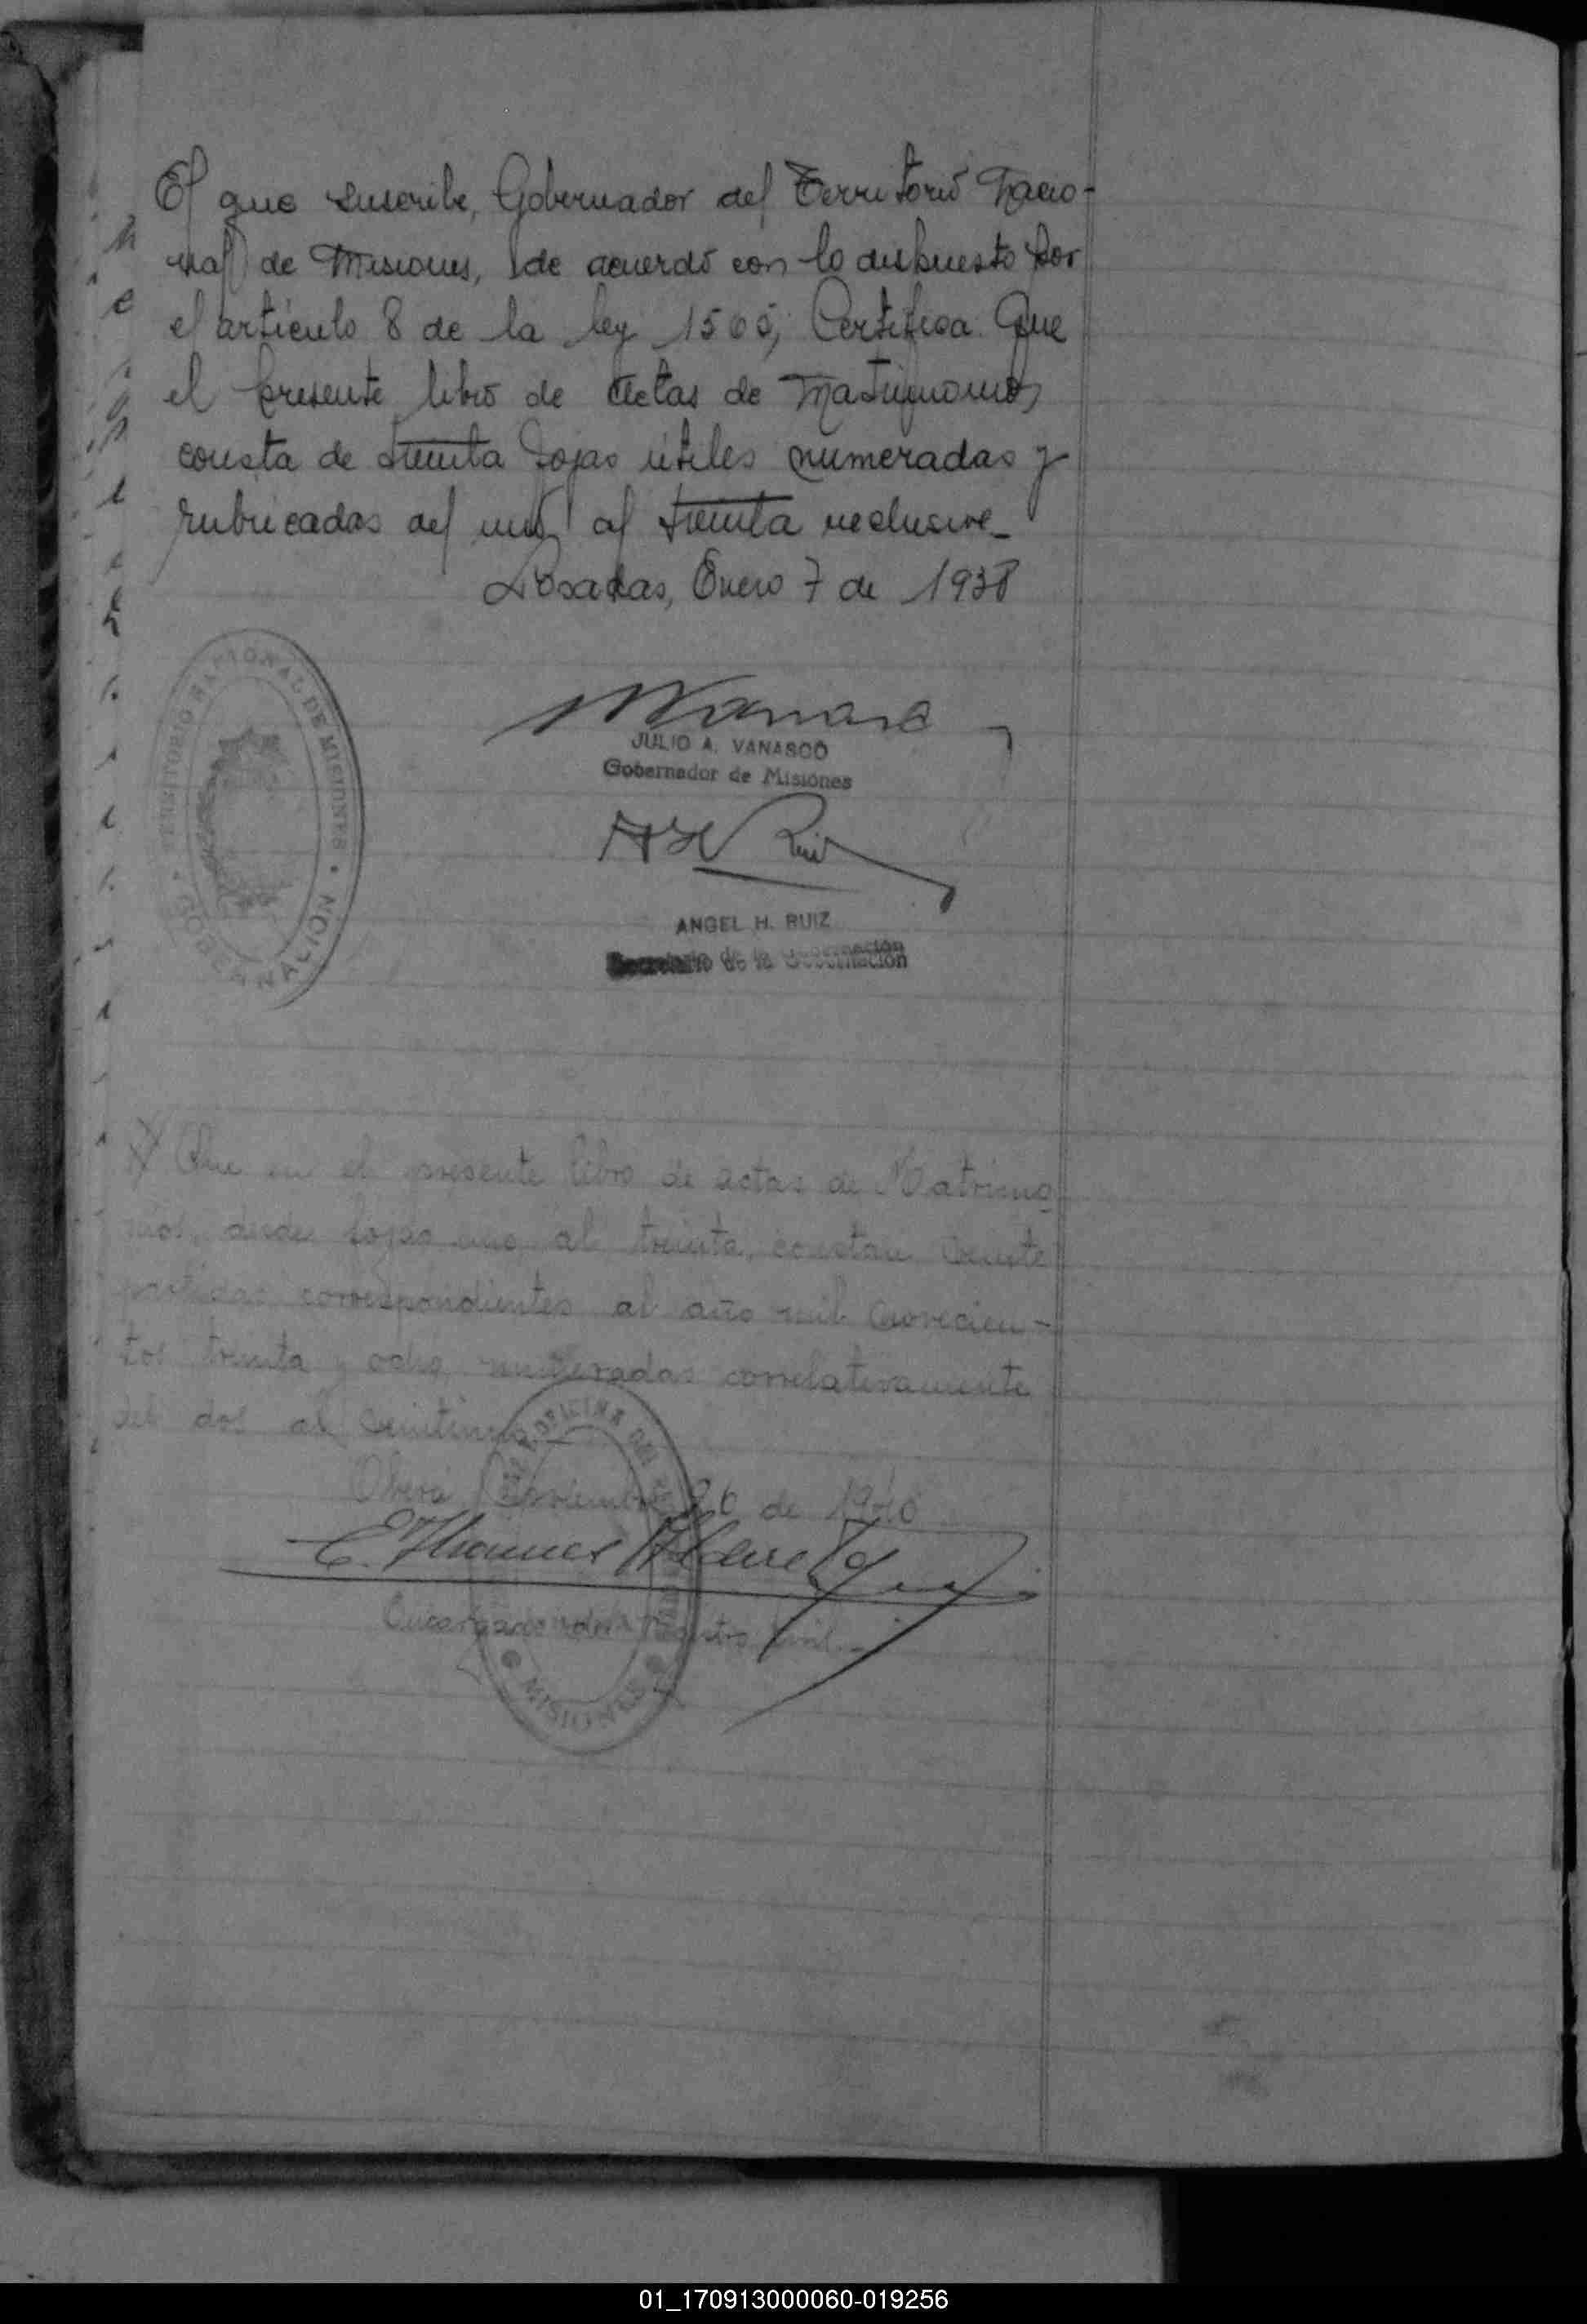 El que suscribe, Gobernador del Territorio Nacio-
nal de Misiones, de acuerdo con lo dispuesto por
el artículo 8 de la ley 1565, Certifica Que
el presente libro de Actas de Matrimonios,
consta de treinta fojas útiles numeradas y
rubricadas del uno al treinta inclusive_
Posadas, Enero 7 de 1938
TERRITORIO NACIONAL DE MISIONES • GOBERNACIÓN •
JULIO A. VANASCO
Gobernador de Misiones
A H Ruiz
ANGEL H. RUIZ
Secretario de la Gobernación
Que en el presente libro de actas de Matrimo-
nios, desde fojas uno al treinta, constan veinte
partidas correspondientes al año mil novecien-
tos treinta y ocho, numeradas correlativamente
del dos al veintiuno
Oberá Noviembre 26 de 1940
Encargado del Registro Civil
OFICINA DEL
MISIONES
01_170913000060-019256